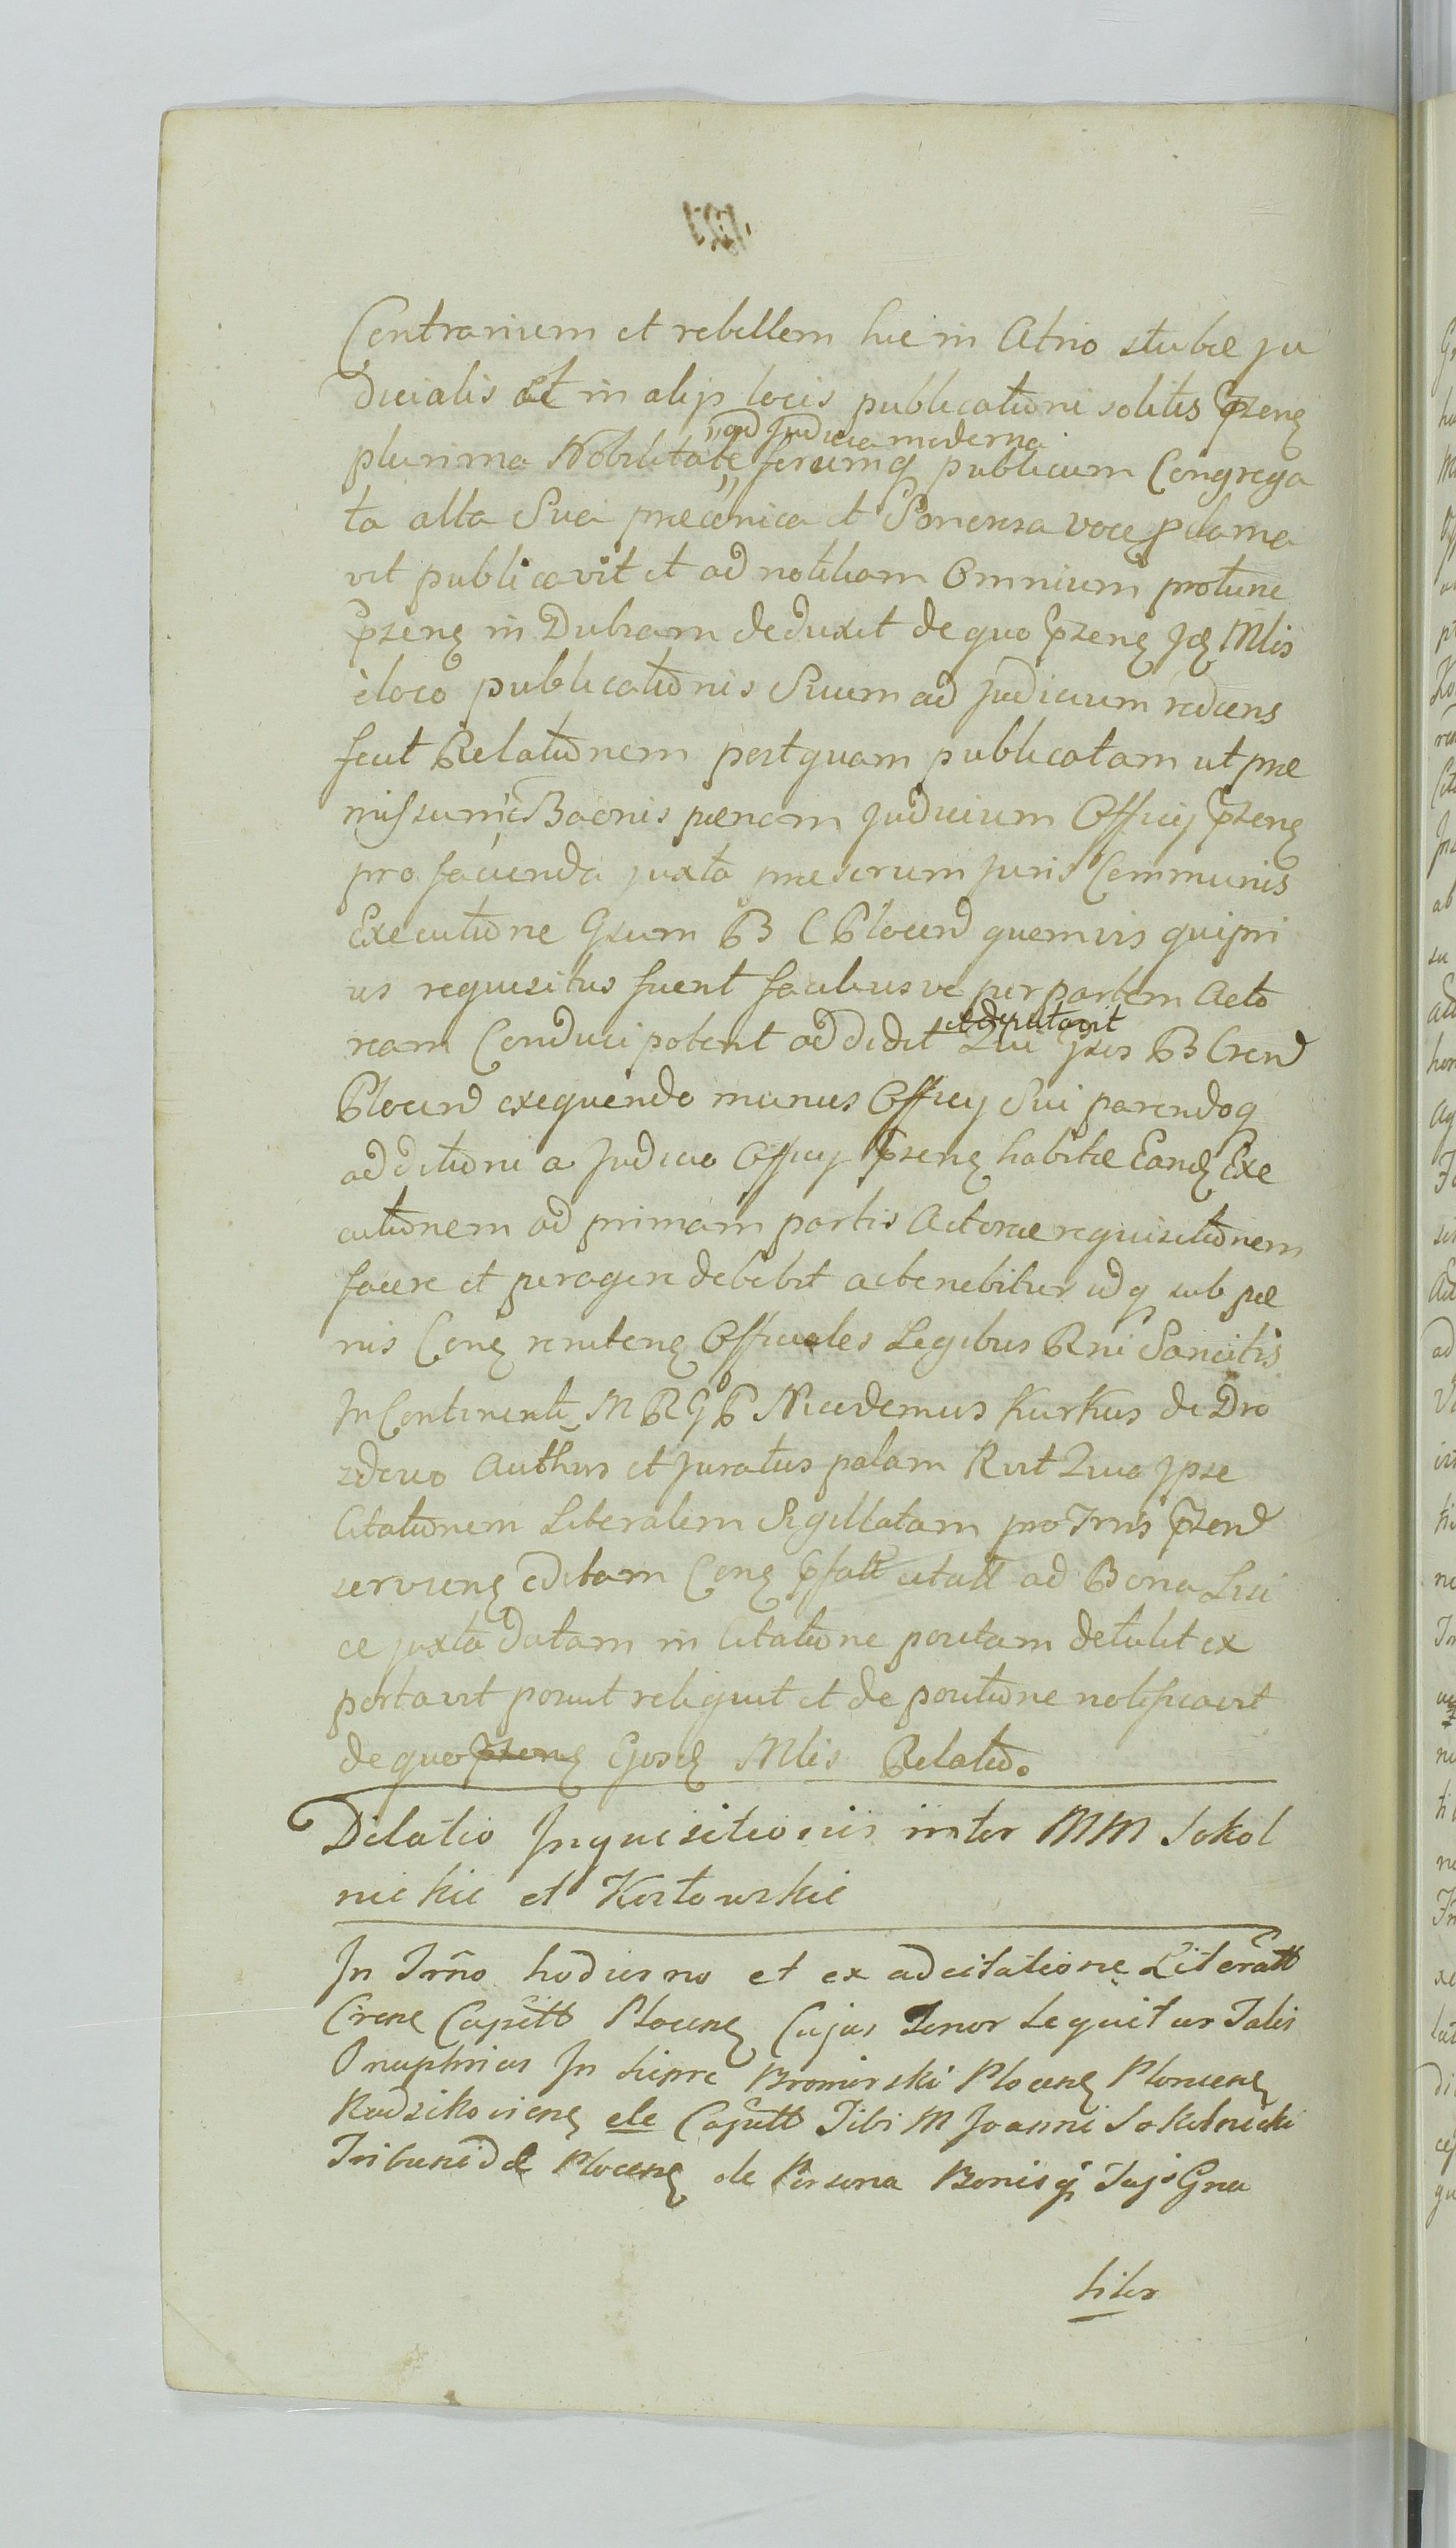 Contrarium et rebellem hic in Atrio stubæ ju
dicialis et in alijs locis publicationi solitis pzenę
plurima Nobilitate "ad Judicia moderna" forumq publicum Congrega
ta alta Sua præconica et Sonorosa voce pclama
vit publicavit et ad notitiam Omnium protunc
pzenę in Dubiam deduxit de quo pzenę Jdę Mlis
è loco publicationis Suum ad Judicium rediens
fecit Relationem postquam publicatam ut præ
missum è Baonis pœnam Judicium Officij pzenę
pro facienda juxta præscrum juris Communis
Executione Gsum B C Plocen quemvis qui pri
us requisitus fuerit facilius ve per partem Acto
ream Conduci poterit addidit et deputavit Qui Jpse B Cren
Plocen exequendo munus Officij Sui parendoq
additioni a Judicio Officij pzenę habitæ Eandę Exe
cutionem ad primam partis Actoreæ requisitionem
facere et peragere debebit ac tenebitur idq sub pœ
nis Conę renitenę Officiales Legibus Rni Sancitis
In Continenti M R G P Nicodemus Kurkus de Dro
zdowo Authus et Juratus palam Rvit Quo Jpse
Citationem Literalem Sigillatam pro Trnis pzen
servienę editam Conę pfatt citatt ad Bona Lisi
ce juxta Datam in Citatione positam detulit ex
portavit posuit reliquit et de positione notificavit
de quo pzenę Ejusdę Mlis Relatio.
Dilatio Inquisitionis inter MM Sokol
nickie et Kostowskie
In Trno hodierno et ex adcitatione Literatt
Crenę Capitt Plocenę Cujus Tenor Sequitur Talis
Onuphrius In Siepre Bromirski Plocenę Plonscenę
Radzikovienę etc Capitt Tibi M Joanni Sokolnicki
Tribunidæ Plocenę de Persona Bonisq Tujs Gna
liter